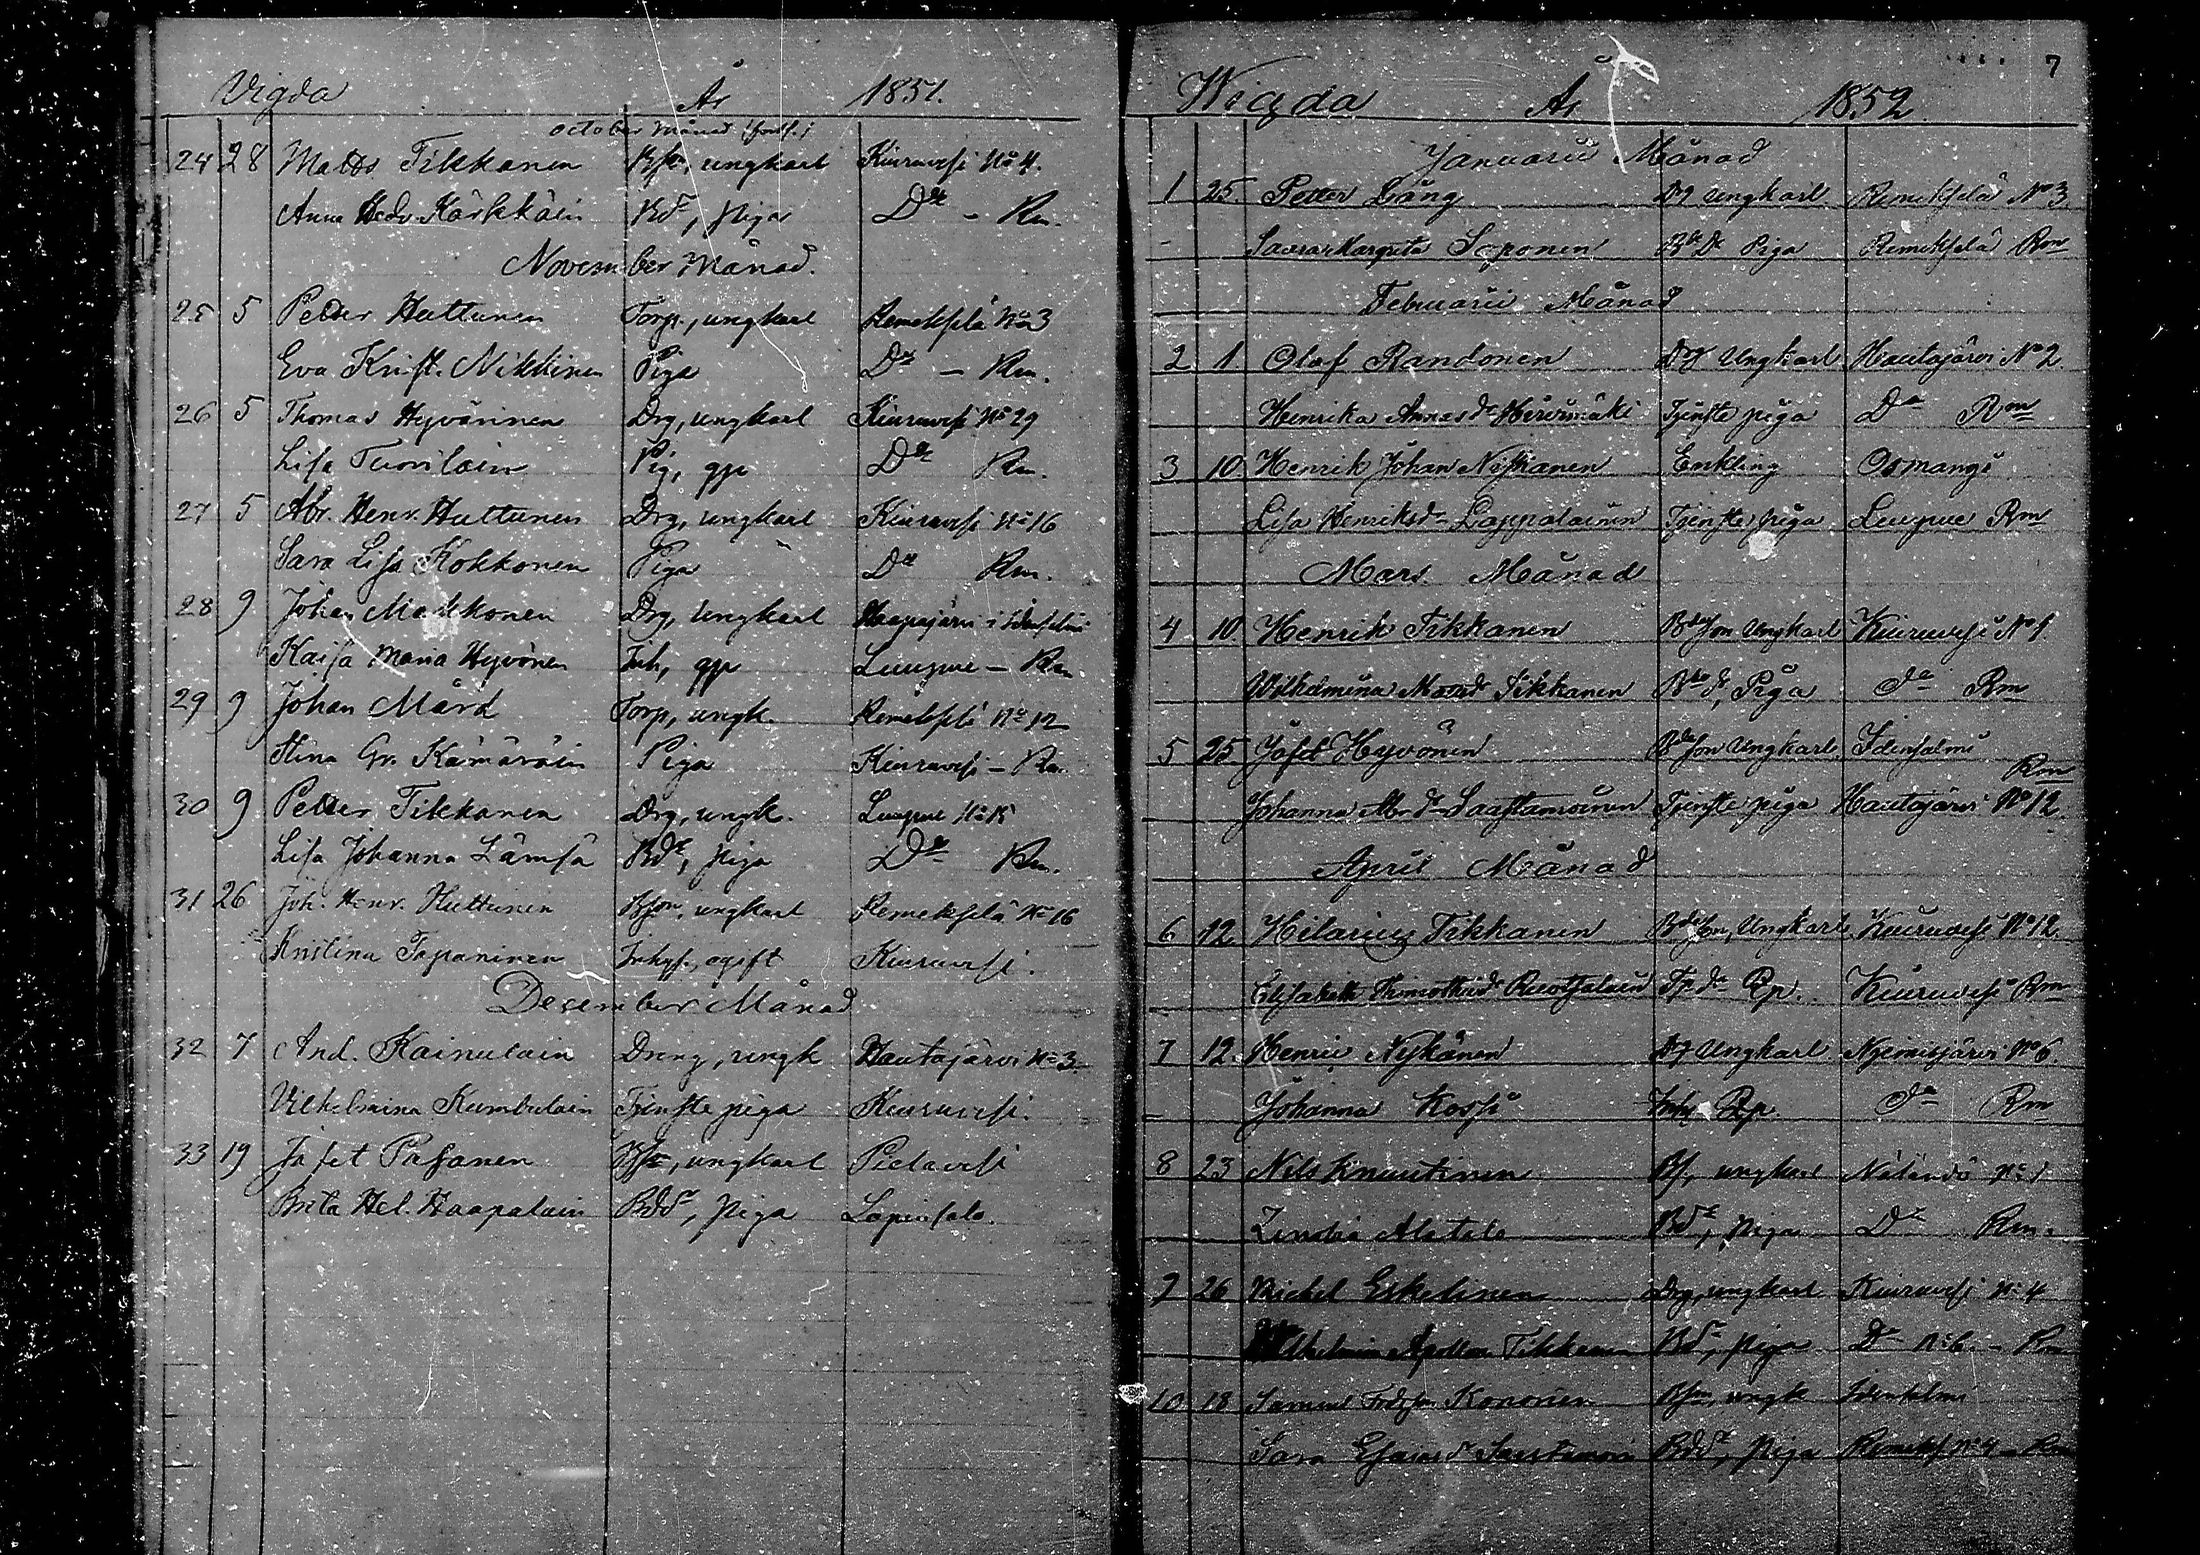 Vigda År 1851.
October Månad (forts.)
24 28 Matts Tikkanen Bson, ungkarl Kiuruvesi No 4.
Anna Hedv. Kärkkäin Bdr, piga Do – Rm.
November Månad.
25 5 Petter Huttunen Torp., ungkarl Remeksela No 3
Eva Krist. Nikkinen Piga Do – Rm.
26 5 Thomas Hyvärinen Drg, ungkarl Kiuruvesi No 29
Lisa Tuovilain Pig, gp Do Rm.
27 5 Abr. Henr. Huttunen Drg, ungkarl Kiuruvesi No 16
Sara Lisa Kokkonen Piga Do Rm.
28 9 Johan Markkonen Drg, ungkarl Haapajärvi i Idensalmi
Kaisa Maria Hyvönen Inh, gp Luupue – Rm.
29 9 Johan Mård Torp, ungk. Remekselä No 12
Stina Gr. Kämäräin Piga Kiuruvesi – Rm.
30 9 Petter Tikkanen Drg, ungk. Luupue No 15
Lisa Johanna Lämsä Bdr, piga Do Rm.
31 26 Joh. Henr. Huttunen Bson, ungkarl Remekselä No 16
Kristina Tapaninen Inhys., ogift Kiuruvesi.
December Månad
32 7 And. Kainulain Dreng, ungk Hautajärvi No 3
Vilhelmina Kumbulain Tjenste piga Kiuruvesi.
33 19 Jafet Pasanen Bson, ungkarl Pielavesi
Brita Hel. Haapalain Bdr, piga Lapinsalo.
7
Wigda År 1852
Januarii Månad
1 25. Petter Lång Dg Ungkarl. Remekselä No 3
– Saara Margreta Saponen Bde Dr Piga Remekselä Rm
Februarii Månad
2 1 Olof Randonen Drg Ungkarl Hautajärvi No 2.
Henrika Annasdr Hirvimäki Tjenste piga Do Rm
3 10 Henrik Johan Niskanen Enkling Osmangi
Lisa Henriksdr Lappalainen Tjenste piga Luupue Rm
Mars Månad
4 10. Henrik Tikkanen Bdeson Ungkarl Kiuruvesi No 1
Wilhelmina Tikkanen Bde dr, Piga Do Rm
5 25 Jafet Hyvönen Bdeson Ungkarl. Idensalmi
Rm
Johanna Abr dr Saastamoinen Tjenste piga Hautajärvi No 12.
April Månad
6 12. Hilarius Tikkanen Bdeson, Ungkarl Kiuruvesi No 12.
Elisabeth Ruotsalain Tp. dr Pp. Kiuruvesi Rm
7 12. Henric Niskanen Dg Ungkarl Niemisjärvi No 6.
– Johanna Kossi Inhs Pp. Do Rm
8 23 Nils Knuutinen Bs, ungkarl Näläntö No 1
Alatalo Bdr, piga Do Rm.
9 26 Michel Eskelinen Drg, ungkarl Kiuruvesi No 4
Vilhelmina Apollon Tikkanen Bdr, piga Do No 6. – Rm
10 18 Samuel Kononen Bson, ungk Idensalmi
Sara Esaiasdr Bdr, piga Remeks. No 4 – Rm